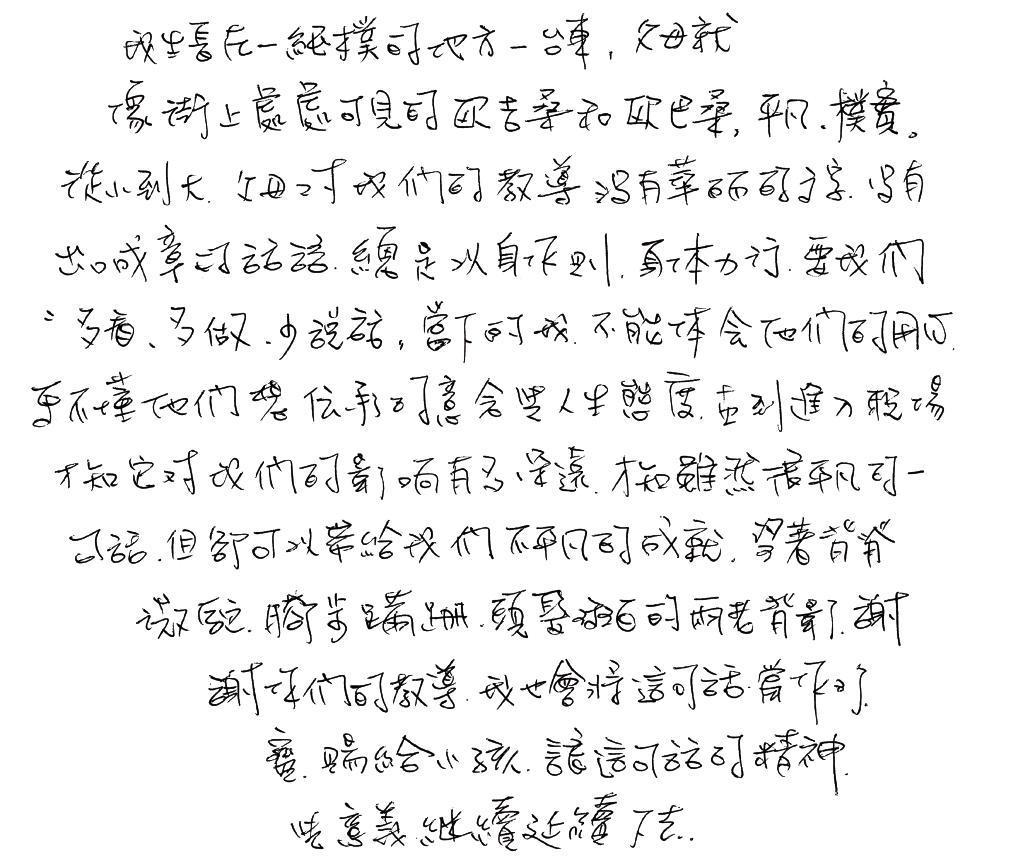 我生長在一純樸的地方—台東，父母就
像街上處處可見的歐吉桑和歐巴桑，平凡、樸實。
從小到大，父母对我們的教導沒有華丽的文字，沒有
出口成章的話語，總是以身作則，頁体力行，要我們
"多看、多做、少說話"，當下的我，不能体会他們的用心，
更不懂他們想伝承的意含與人生態度，直到進入職場
才知它对我們的影响有多深遠，才知雖然很平凡的一
句話，但卻可以帶給我們不平凡的成就，望著背脊
微駝，腳步蹣跚，頭髮斑白的兩老背影，謝
謝你們的教導，我也會將這句話，當作的
寶，賜給小孩，讓這句話的精神，
與意義繼續延續下去..